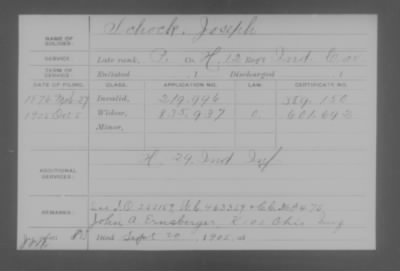 NAME OF SOLDIER: Schock, Joseph
SERVICE: Late rank, P. Co. H, 12 Reg't Ind. Cav.
TERM OF SERVICE: Enlisted , 1 Discharged , 1
DATE OF FILING. CLASS. APPLICATION NO. LAW. CERTIFICATE NO.
1876 Invalid, 219.994 150
1905 Oct Widow, 835,937 601.693
Minor,
ADDITIONAL SERVICES: H. 29 Ind Inf
REMARKS: 463359
John A Ernsberger, Ohio Inf
Died Sept 20, 1905, at